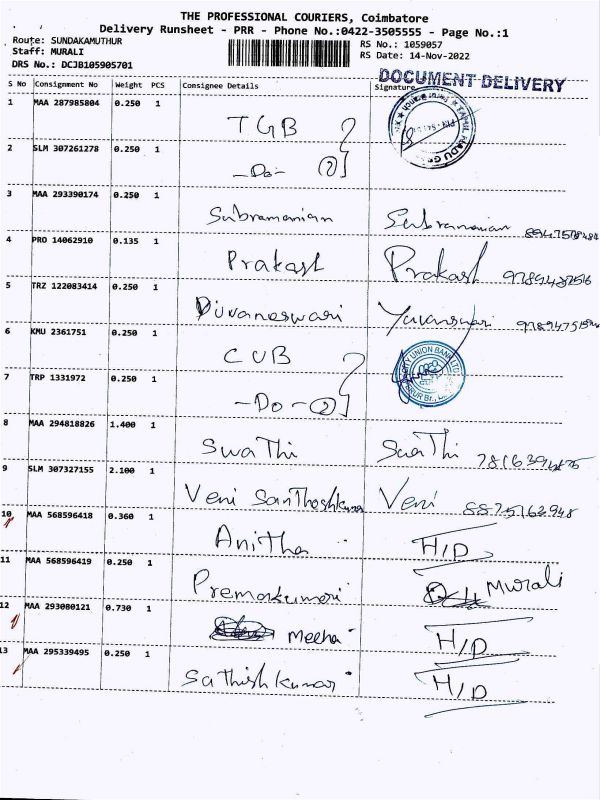 THE PROFESSIONAL COURIERS, Coimbatore
Delivery Runsheet - PRR - Phone No.:0422-3505555 - Page No.:1
Route: SUNDAKAMUTHUR
Staff: MURALI
DRS No.: DCJB105905701
RS No.: 1059057
RS Date: 14-Nov-2022
DOCUMENT DELIVERY
S No Consignment No Weight PCS Consignee Details Signature
1 MAA 287985804 0.250 1 TGB
2 SLM 307261278 0.250 1 -Do- (2)
3 MAA 293390174 0.250 1 Subramanian Subramanian
4 PRO 14062910 0.135 1 Prakash Prakash
5 TRZ 122083414 0.250 1
6 KMU 2361751 0.250 1 CUB CITY UNION BANK LTD
7 TRP 1331972 0.250 1 -Do- (2)
8 MAA 294818826 1.400 1 Swathi Swathi
9 SLM 307327155 2.100 1 Veni Santhoshkumar Veni 8875162948
10 MAA 568596418 0.360 1 Anitha H/D
11 MAA 568596419 0.250 1 Premakumari Murali
12 MAA 293080121 0.730 1 Meena H/D
13 MAA 295339495 0.250 1 Sathishkumar H/D